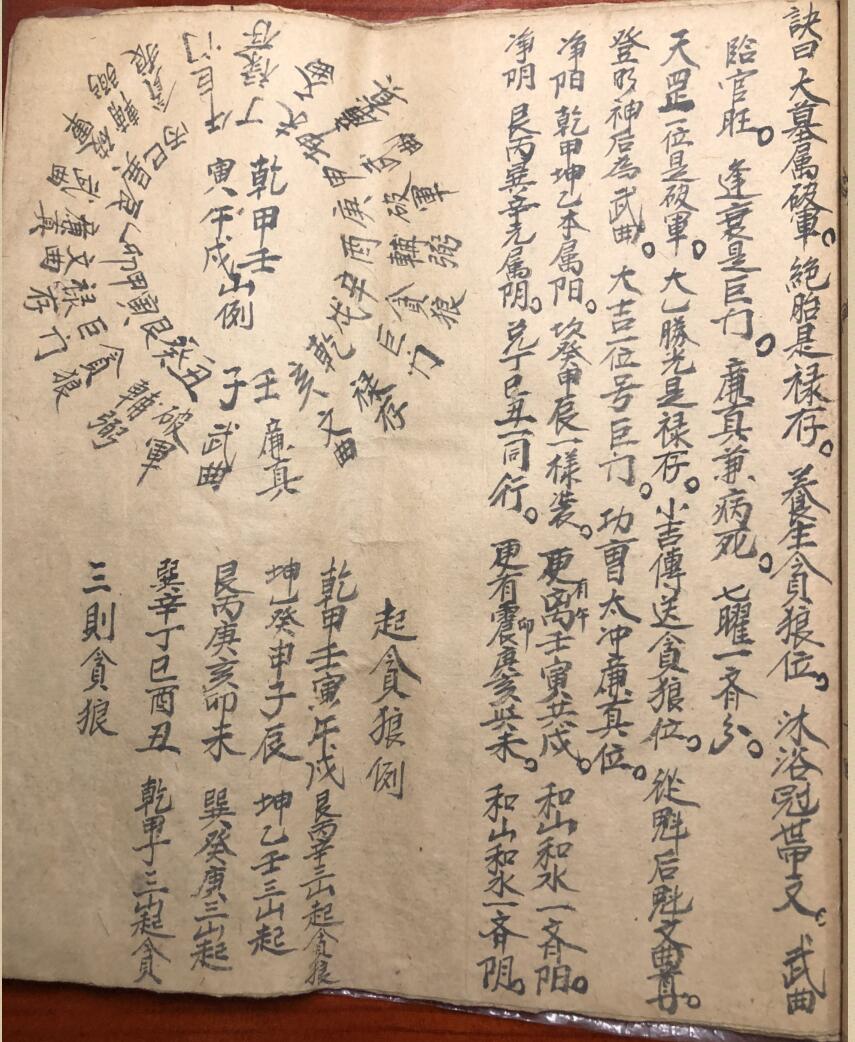 訣曰大墓属破軍。絕胎是禄存。養生貪狼位。沐浴冠帶文。武曲
臨官旺。逢衰是巨门。廉真兼病死。七曜一齊分。
天罡一位是破軍。大乙勝光是禄存。小吉傳送貪狼位。從魁后魁文曲尋。
登明神后為武曲。大吉一位号巨门。功曹太冲廉真位。
净阳 乾甲坤乙本属阳。坎癸申辰一樣裝。更有午离壬寅共戍。和山和水一齊阳。
净阴 艮丙巽辛尤属阴。兑丁巳丑一同行。更有震卯庚亥共未。和山和水一齊阴。
起貪狼例
乾甲壬寅午戍 艮丙辛三山起貪狼
坤乙癸申子辰 坤乙壬三山起
艮丙庚亥卯未 巽癸庚三山起
巽辛丁巳酉丑 乾甲丁三山起貪
三則貪狼
乾甲壬
寅午戍山例
壬 廉真
子 武曲
丑 破軍
癸 輔弼
艮 貪狼
寅 巨门
甲 禄存
卯 文曲
乙 廉真
辰 武曲
巽 破軍
巳 輔弼
丙 貪狼
午 巨门
丁 禄存
坤 武曲
申 破軍
庚 輔弼
酉 貪狼
辛 巨门
戍 禄存
乾
亥 文曲